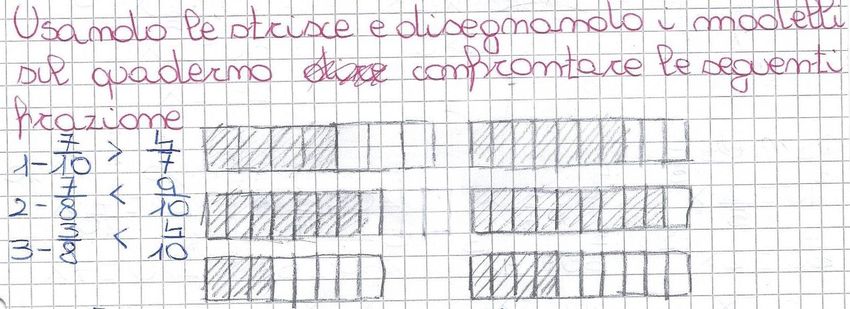 Usando le strisce e disegnandolo i modelli
sul quaderno confrontare le seguenti
frazione
1- 7/10 > 4/7
2- 7/8 < 9/10
3- 3/8 < 4/10